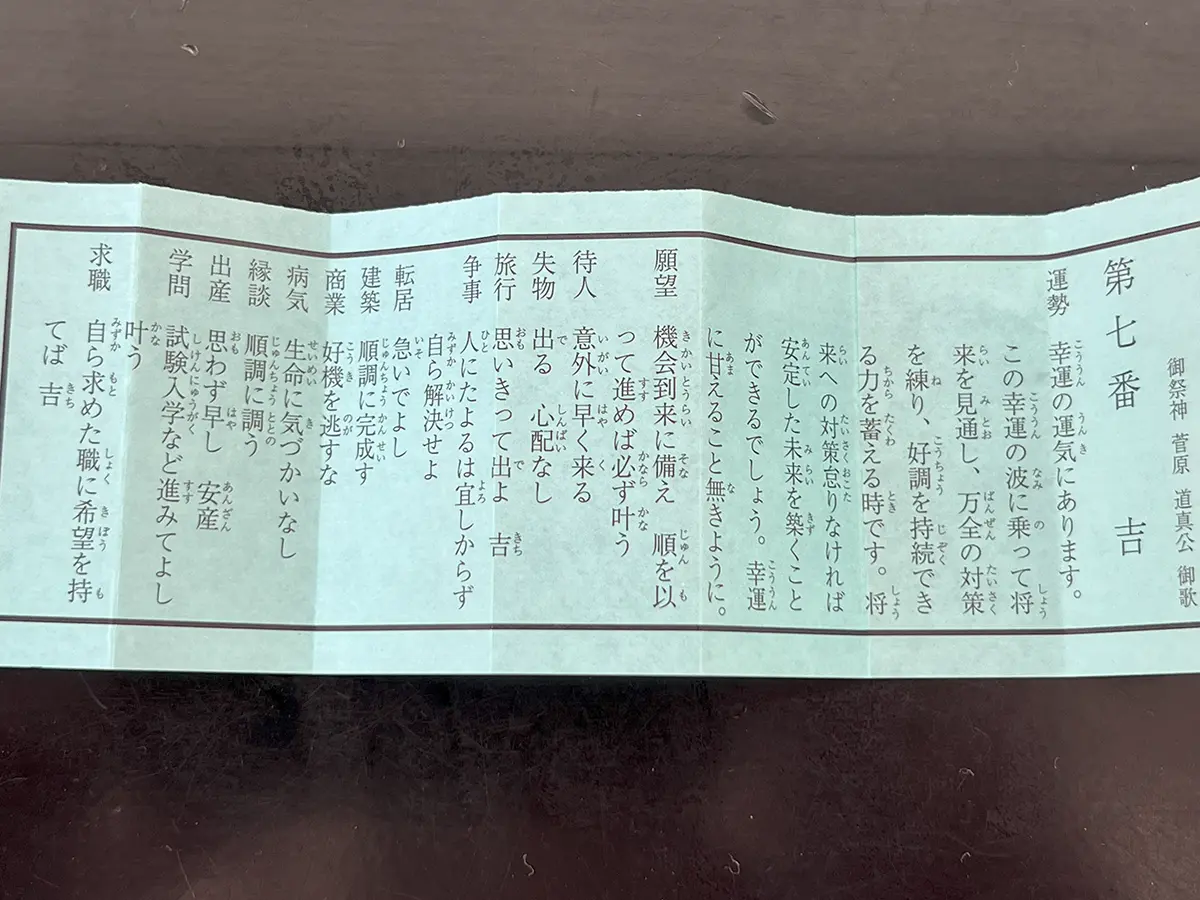 御祭神 菅原 道真公 御歌
第七番 吉
運勢 幸運の運気にあります。
この幸運の波に乗って将
来を見通し、万全の対策
を練り、好調を持続でき
る力を蓄える時です。将
来への対策怠りなければ
安定した未来を築くこと
ができるでしょう。幸運
に甘えること無きように。
願望 機会到来に備え 順を以
って進めば必ず叶う
待人 意外に早く来る
失物 出る 心配なし
旅行 思いきって出よ 吉
争事 人にたよるは宜しからず
自ら解決せよ
転居 急いでよし
建築 順調に完成す
商業 好機を逃すな
病気 生命に気づかいなし
縁談 順調に調う
出産 思わず早し 安産
学問 試験入学など進みてよし
叶う
求職 自ら求めた職に希望を持
てば 吉